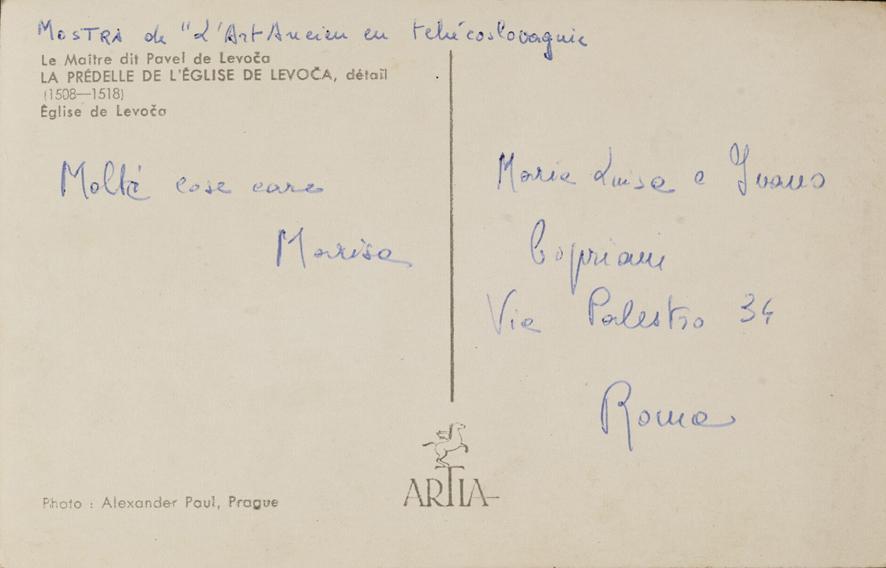 MOSTRA de "L'Art Ancien en Tchécoslovaquie
Le Maître dit Pavel de Levoča
LA PRÉDELLE DE L'ÉGLISE DE LEVOČA, détail
(1508—1518)
Église de Levoča
Molte cose care
Marisa
Maria Luisa e Ivano
Cipriani
Via Palestro 34
Roma
ARTIA
Photo : Alexander Paul, Prague